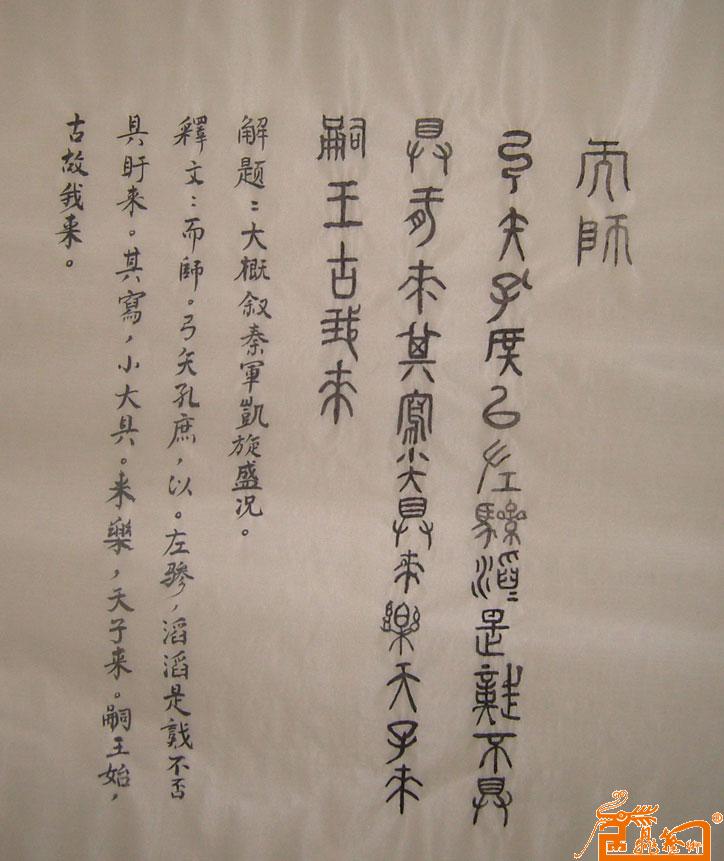 而師
弓矢孔庶以左驂滔=是戠不具
具盱来其寫小大具来樂天子来
嗣王古我来
解题：大概叙秦軍凱旋盛况。
釋文：而師。弓矢孔庶，以。左骖，滔滔是戠不否
具盱来。其寫，小大具。来樂，天子来。嗣王始，
古故我来。